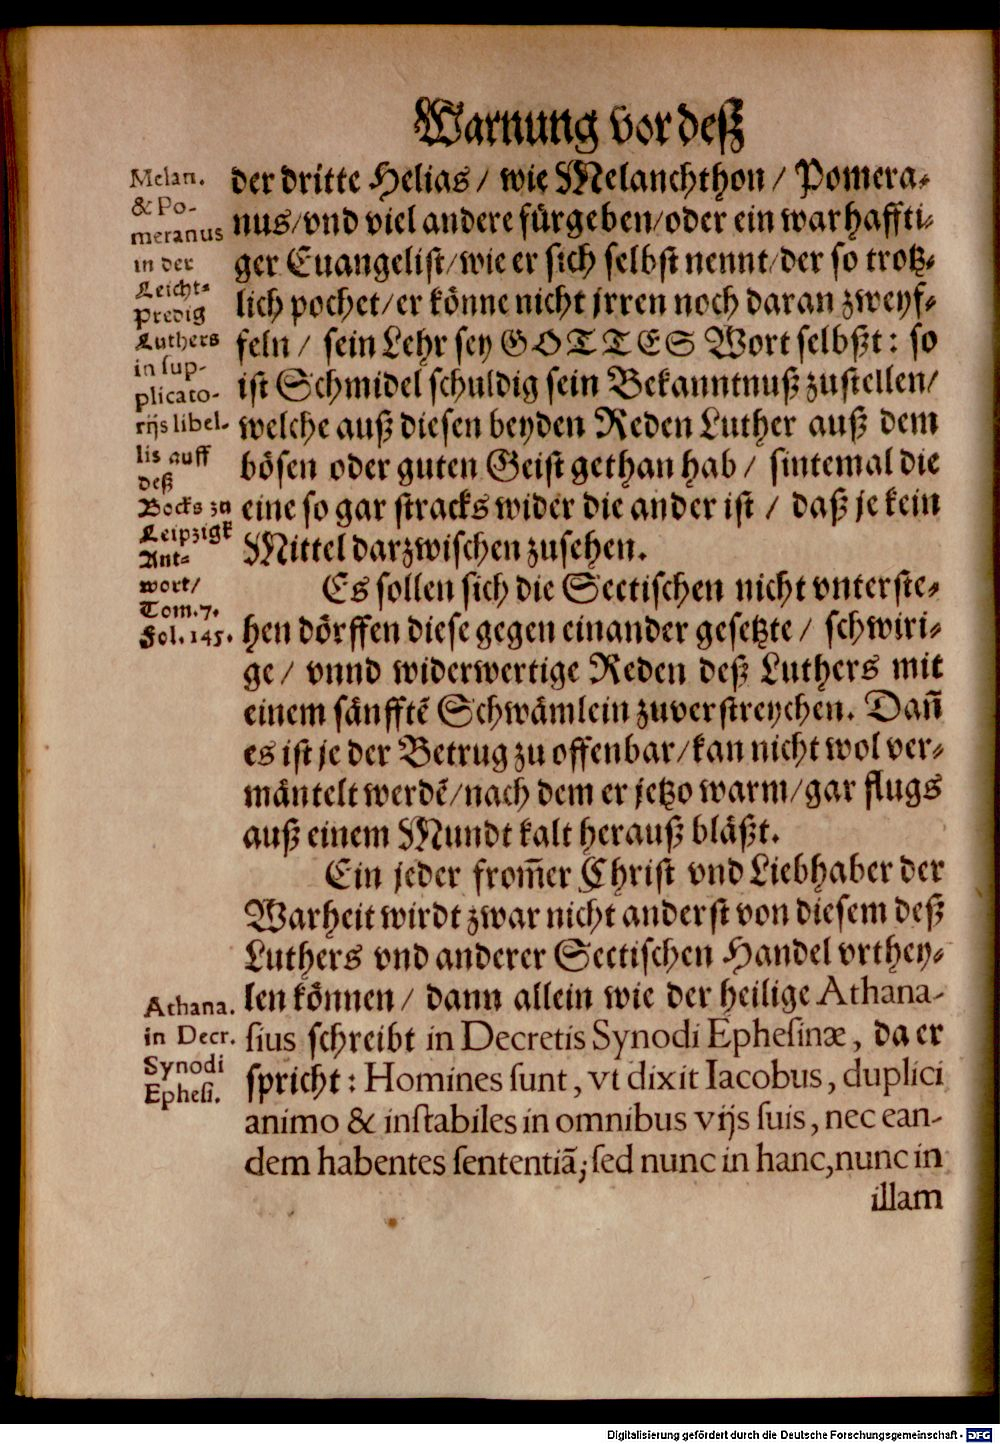 Warnung vor deß
Melan.
& Po-
meranus
in der
Leicht-
Predig
Luthers
in sup-
plicato-
rijs libel-
lis auff
deß
Bocks zu
Leipzigk
Ant-
wort/
Tom. 7.
Fol. 145.
der dritte Helias / wie Melanchthon / Pomera-
nus/vnd viel andere fürgeben/oder ein warhaffti-
ger Euangelist/wie er sich selbst nennt/der so trotz-
lich pochet/er könne nicht jrren noch daran zweyf-
feln / sein Lehr sey GOTTES Wort selbßt: so
ist Schmidel schuldig sein Bekanntnuß zustellen/
welche auß diesen beyden Reden Luther auß dem
bösen oder guten Geist gethan hab / sintemal die
eine so gar stracks wider die ander ist / daß je kein
Mittel darzwischen zusehen.
Es sollen sich die Sectischen nicht vnterste-
hen dörffen diese gegen einander gesetzte / schwiri-
ge / vnnd widerwertige Reden deß Luthers mit
einem sänfftē Schwämlein zuverstreychen. Dañ
es ist je der Betrug zu offenbar/kan nicht wol ver-
mäntelt werdē/nach dem er jetzo warm/gar flugs
auß einem Mundt kalt herauß bläßt.
Ein jeder from̄er Christ vnd Liebhaber der
Warheit wirdt zwar nicht anderst von diesem deß
Luthers vnd anderer Sectischen Handel vrthey-
len können / dann allein wie der heilige Athana-
sius schreibt in Decretis Synodi Ephesinæ, da er
spricht: Homines sunt, vt dixit Iacobus, duplici
animo & instabiles in omnibus vijs suis, nec ean-
dem habentes sententiā; sed nunc in hanc, nunc in
illam
Athana.
in Decr.
Synodi
Ephesi.
Digitalisierung gefördert durch die Deutsche Forschungsgemeinschaft - DFG